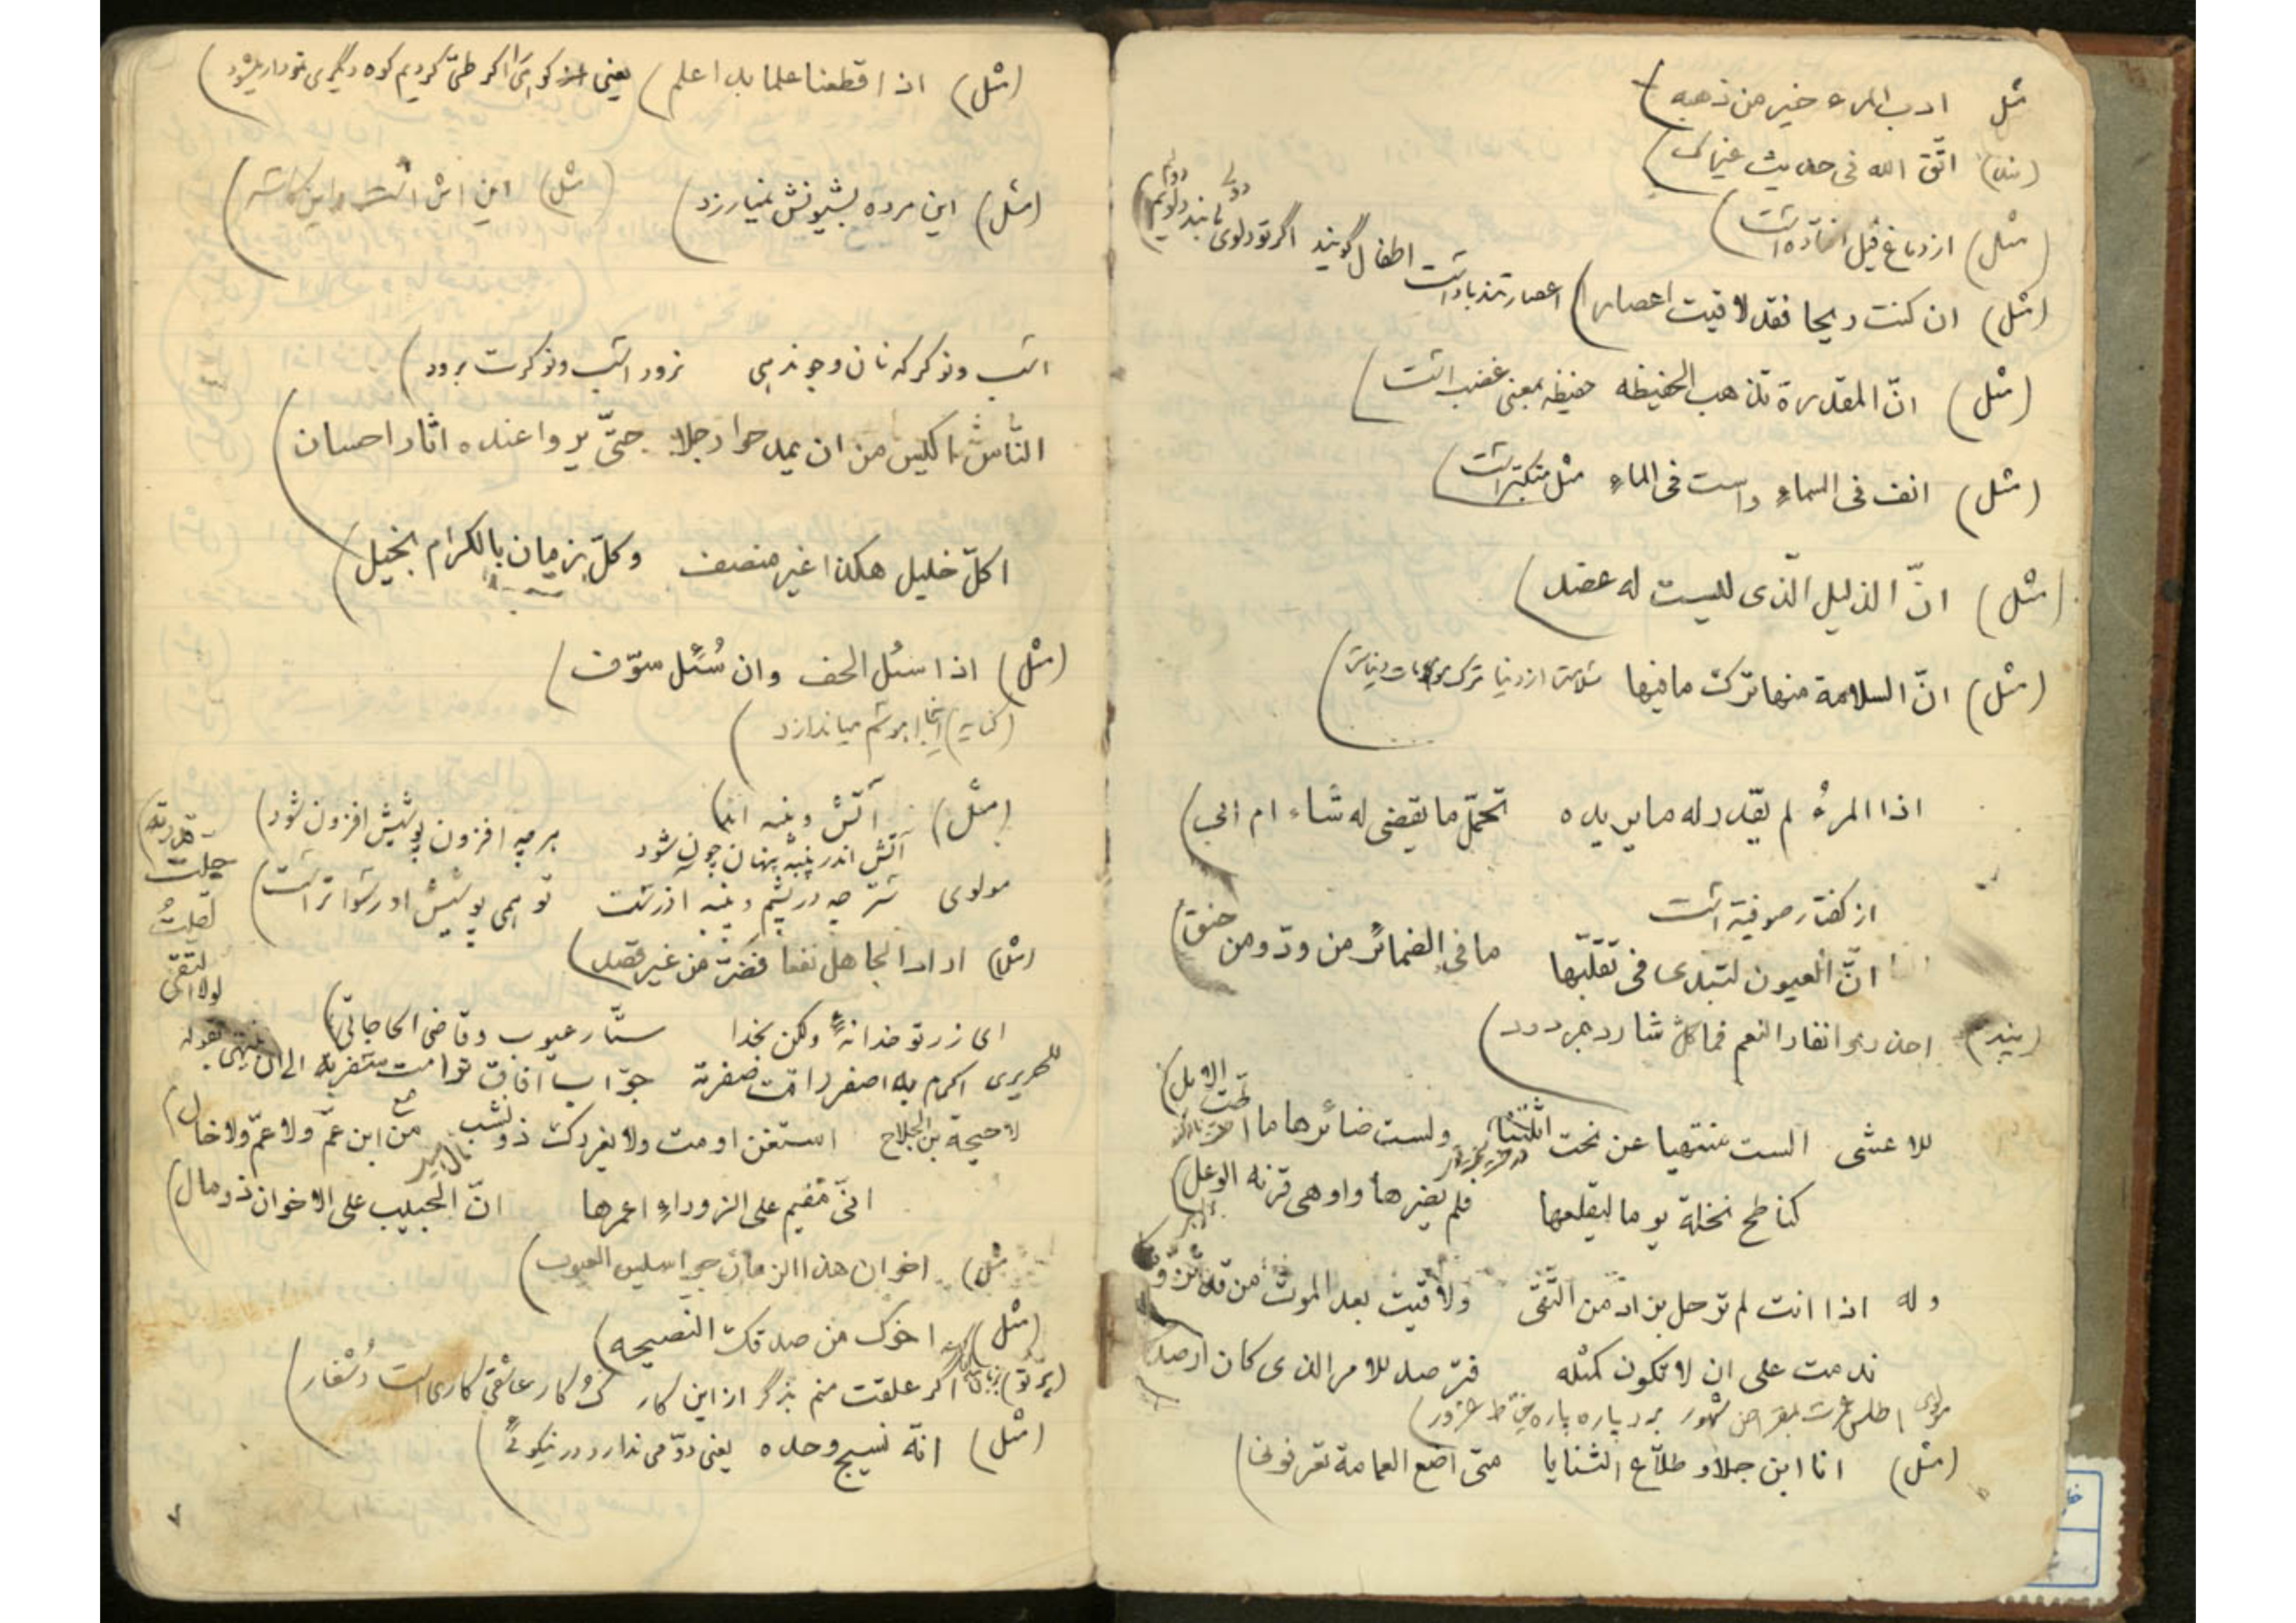 مثل ادب المرء خیر من ذهبه)
(مثل) اتّق الله فی حدیث
(مثل) از دماغ فیل افتاده است)
(مثل) ان کنت ریحا فقد لاقیت اعصارا) اعصار تندباد است اطفال گویند اگر تو دلوی ما بند دلویم)
(مثل) انّ المقدرة تذهب الحفیظه حفیظه بمعنی غضب است)
(مثل) انف فی السماءِ واست فی الماءِ مثل متکبر است)
(مثل) انّ الذلیل الّذی لیست له عضد)
(مثل) انّ السلامة منها ترکُ مافیها سلامتی از دنیا ترک
اذا المرءُ لم یقدر له ما یریده تحمّل ما یقضی له شاء ام ابی)
از گفتار صوفیة است
انّ العیون لتبدی فی تقلّبها ما فی الضمائر من ودّ ومن حنق)
(پند) احذروا نفاد النعم فما کلّ شارد بمردود)
للاعشی الست منتهیا عن نحت اثلتنا ولست ضائرها ما اطّت الابل)
کناطح نخلة یوما لیقلعها فلم یضرها واوهی قرنه الوعل)
وله اذا انت لم ترحل بزاد من التّقی ولاقیت بعد الموت من قد تزوّدا
ندمت علی ان لا تکون کمثله فترصد للامر الذی کان ارصدا
مولوی اطلس عمرت بمقراض شهور برد پاره پاره خیاط غرور)
(مثل) انا ابن جلا و طلّاع الثنایا متی اضع العمامة تعرفونی)
(مثل) اذا قطعنا علما بدا علم) یعنی کوهی را اگر طیّ کردیم کوه دیگری نمودار میشود)
(مثل) این مرده بشیونش نمیارزد) (مثل) این اش است و این کاسه)
اسب و نوکر که نان و جو ندهی نرود اسب و نوکرت برود)
النّاس اکیس من ان یمدحوا رجلا حتّی یروا عنده اثار احسان)
اکلّ خلیل هکذا غیر منصف وکلّ زمان بالکرام بخیل)
(مثل) اذا سئل الحف وان سُئل سوّف)
(کنایه) اینجا ابو پشم میاندازد)
(مثل) آتش و پنبه اند)
آتش اندر پنبه پنهان چون شود هر چه افزون پوشیش افزون شود)
مولوی ستر چه در پشم و پنبه اذرست تو همی پوشیش او رسواتر است)
(مثل) اراد الجاهل نفعا فضرّ من غیر قصد)
ای زر تو خدا نهٔ ولکن بخدا ستّار عیوب وقاضی الحاجاتی)
للحریری اکرم به اصفر راقت صفرته جوّاب افاق ترامت سفرته الی ان ینتهی بقوله
لولا التقی
لقلتُ
جلت
قدرته)
لاحیحة بن الجلاح استغن او مت ولا یغررک ذو نشب من ابن عمّ ولا عمّ ولا خال)
انّی مقیم علی الزوراءِ اعمرها انّ الحبیب علی الاخوان ذو مال)
مثل) اخوان هذا الزمان جواسیس العیوب)
(مثل) اخوک من صدقک النصیحه)
(پرتو) اگر علقت منم بزگر از این کار که کار عاشقی کاری است دشغار)
(مثل) انّه نسیج وحده یعنی دوّمی ندارد در نیکوئی)
۷